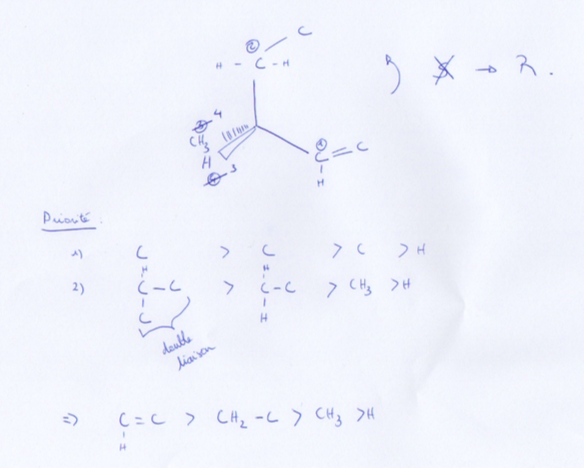 C
②
H - C - H
) S → R.
③ 4
CH₃
H
④ 3
① C = C
H
Priorité :
1) C > C > C > H
H H
2) C - C > C - C > CH₃ > H
C H
double
liaison
=> C = C > CH₂ - C > CH₃ > H
H